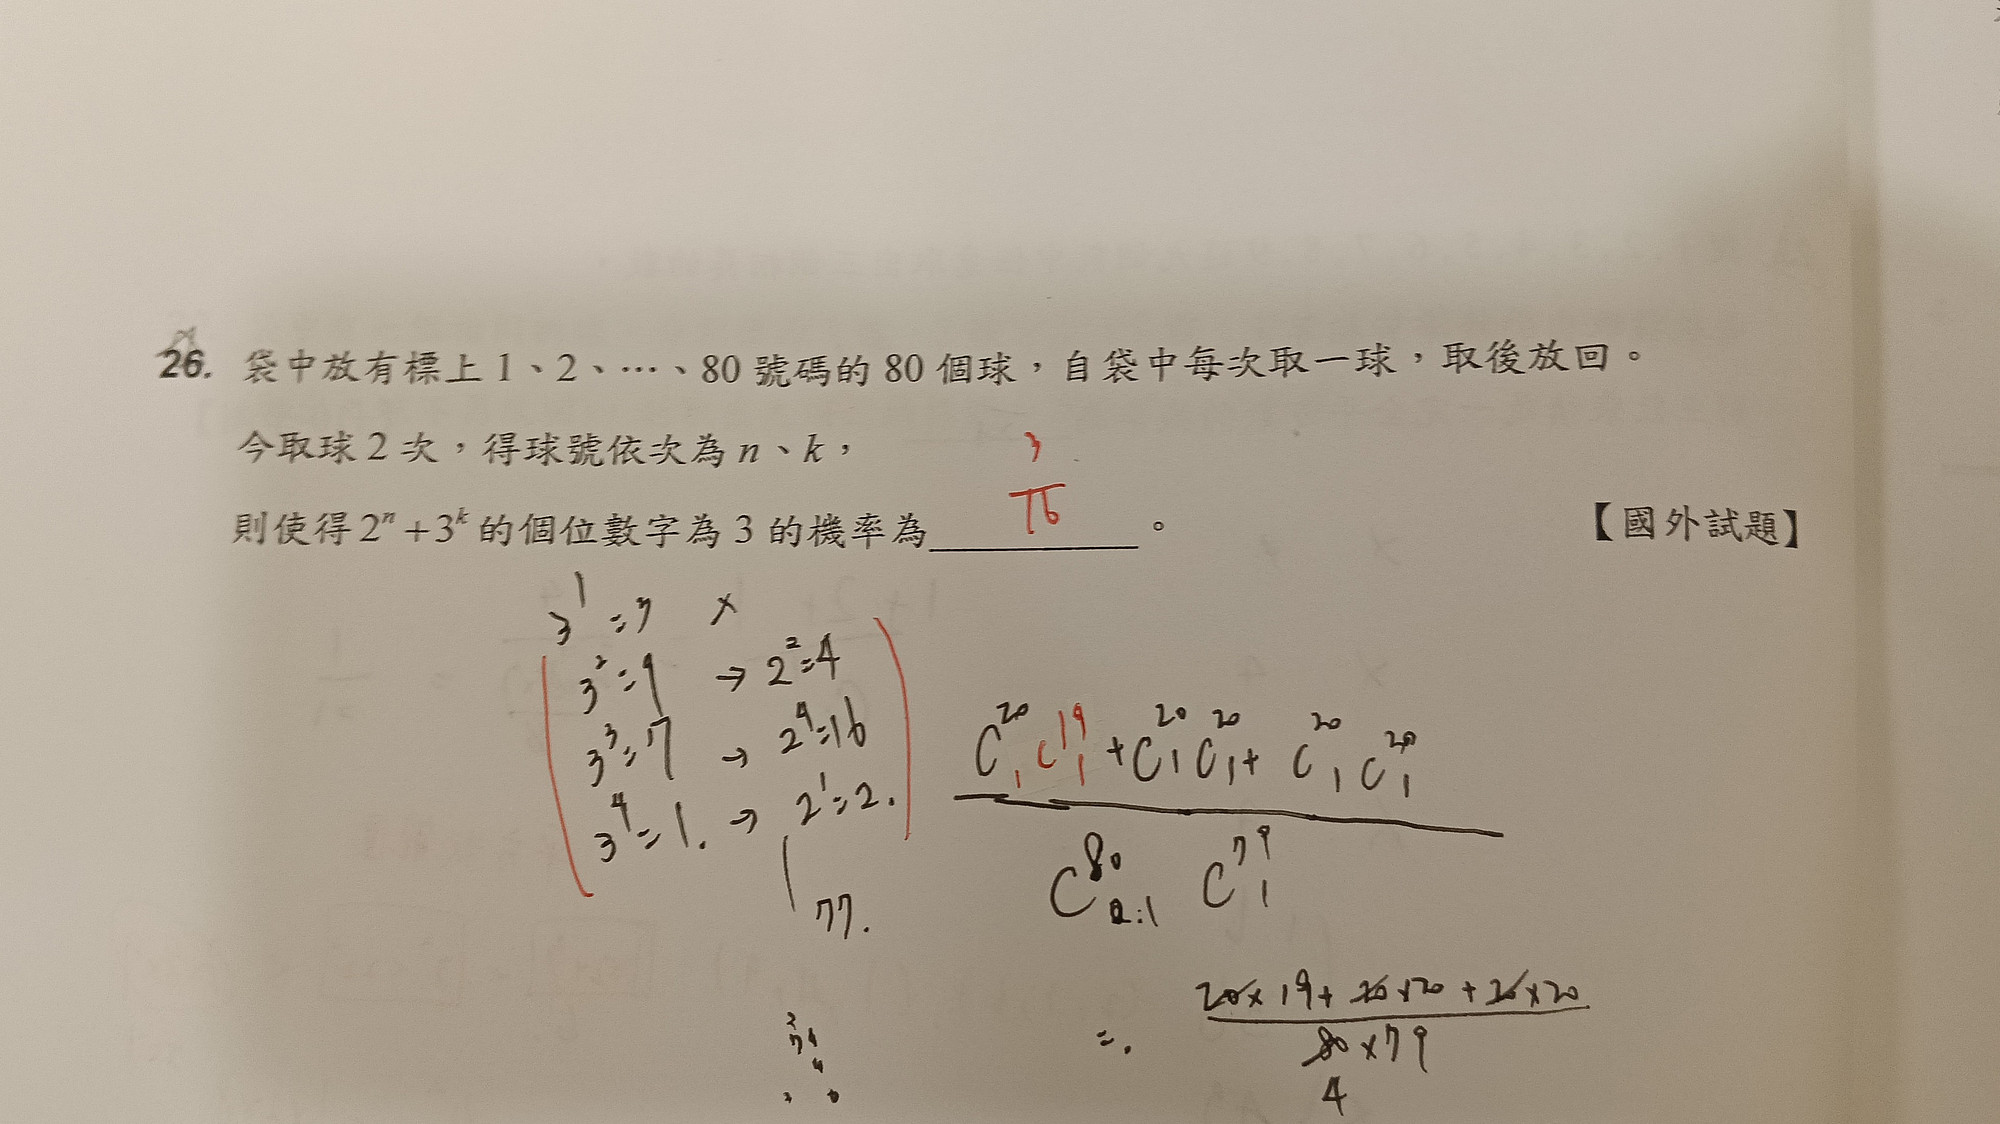 26. 袋中放有標上 1、2、…、80 號碼的 80 個球，自袋中每次取一球，取後放回。
今取球 2 次，得球號依次為 n、k，
則使得 2ⁿ+3ᵏ 的個位數字為 3 的機率為 3/16 。 【國外試題】
3¹=3 ×
3²=9 → 2²=4
3³=7 → 2⁴=16
3⁴=1. → 2¹=2.
77.
C²⁰₁ C¹⁹₁ + C²⁰₁ C²⁰₁ + C²⁰₁ C²⁰₁
C⁸⁰ C⁷⁹₁
= 20×19+20×20+20×20
80×79
4